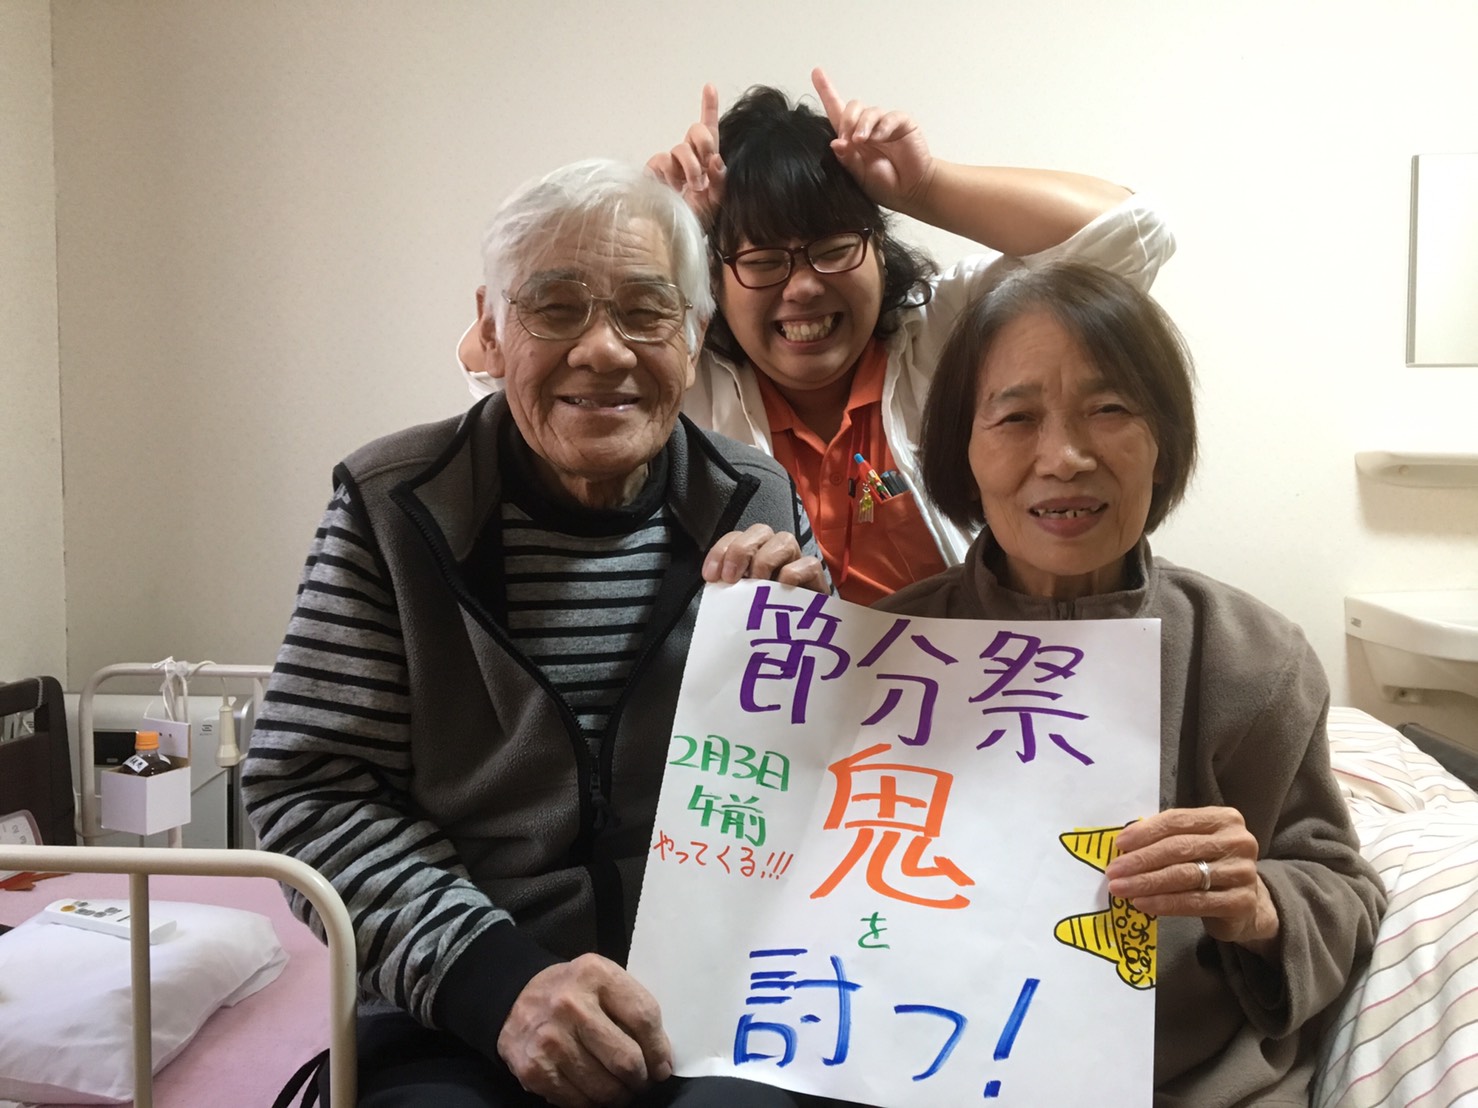 節分祭
2月3日
午前
やってくる!!!
鬼
を
討つ!